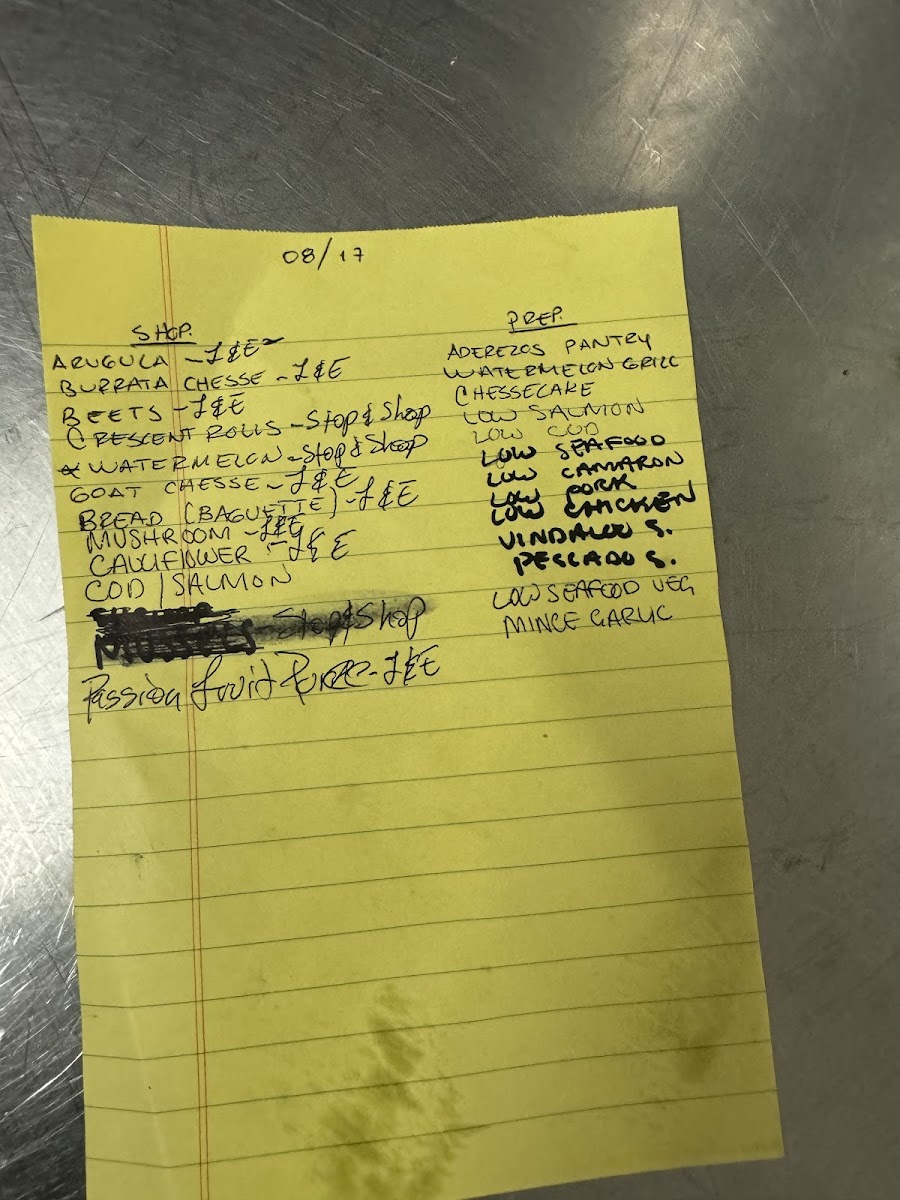 08/17
SHOP.
ARUGULA - I&E
BURRATA CHESSE - I&E
BEETS - I&E
CRESCENT ROLLS - Stop & Shop
* WATERMELON - Stop & Shop
GOAT CHESSE - I&E
BREAD (BAGUETTE) - I&E
MUSHROOM - I&E
CAULIFLOWER - I&E
COD / SALMON
Stop & Shop
Passion fruit Puree - I&E
PREP.
ADEREZOS PANTRY
WATERMELON GRILL
CHESSECAKE
LOW SALMON
LOW COD
LOW SEAFOOD
LOW CAMARON
LOW PORK
LOW CHICKEN
VINDALOO S.
PESCADO S.
LOW SEAFOOD VEG
MINCE GARLIC